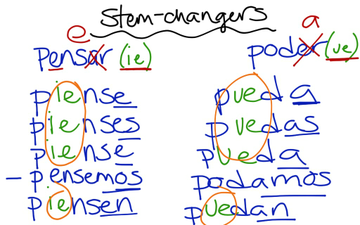 Stem-changers
e
a
pensar (ie)
poder (ue)
piense
pueda
pienses
puedas
piense
pueda
- pensemos
podamos
piensen
puedan